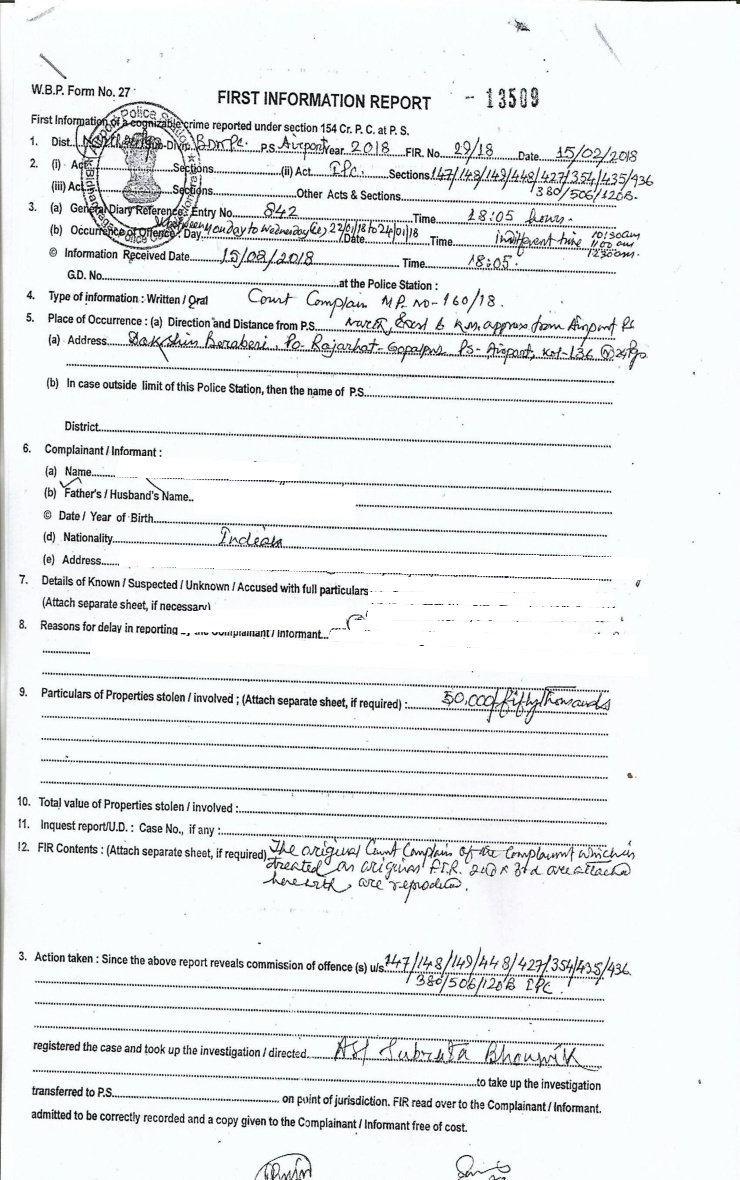 W.B.P. Form No. 27
FIRST INFORMATION REPORT - 13509
First Information of a cognizable crime reported under section 154 Cr. P. C. at P. S.
1. Dist. Sub-Divn. P.S. Airport Year 2018 FIR. No. 29/18 Date 15/02/2018
2. (i) Act Sections (ii) Act IPC. Sections 147/148/149/448/427/354/435/436
(iii) Act Sections Other Acts & Sections 380/506/120B.
3. (a) General Diary Reference: Entry No. 842 Time 18:05 hours.
(b) Occurrence of Offence: Day Monday to Wednesday 22/01/18 to 24/01/18 /Date Time Indifferent time 10:30am 11:00 am 12:30am.
© Information Received Date 15/02/2018 Time 18:05.
G.D. No. at the Police Station :
4. Type of information : Written / Oral Court Complain MP. No-160/18.
5. Place of Occurrence : (a) Direction and Distance from P.S. North, East 6 K.m, approx from Airport PS
(a) Address Dakshin Beraberi, Po- Rajarhat-Gopalpur, Ps- Airport, Kol-136
(b) In case outside limit of this Police Station, then the name of P.S.
District
6. Complainant / Informant :
(a) Name
(b) Father's / Husband's Name..
© Date / Year of Birth
(d) Nationality Indian
(e) Address
7. Details of Known / Suspected / Unknown / Accused with full particulars
(Attach separate sheet, if necessary)
8. Reasons for delay in reporting by the Complainant / Informant
9. Particulars of Properties stolen / involved ; (Attach separate sheet, if required) : 50,000/ fifty thousands
10. Total value of Properties stolen / involved :
11. Inquest report/U.D. : Case No., if any :
12. FIR Contents : (Attach separate sheet, if required) The original Court Complain of the Complainant which is
treated as original F.I.R. and are attached
herewith, are reproduced.
3. Action taken : Since the above report reveals commission of offence (s) u/s 147/148/149/448/427/354/435/436
380/506/120B IPC.
registered the case and took up the investigation / directed ASI Subrata Bhowmik
to take up the investigation
transferred to P.S. on point of jurisdiction. FIR read over to the Complainant / Informant.
admitted to be correctly recorded and a copy given to the Complainant / Informant free of cost.